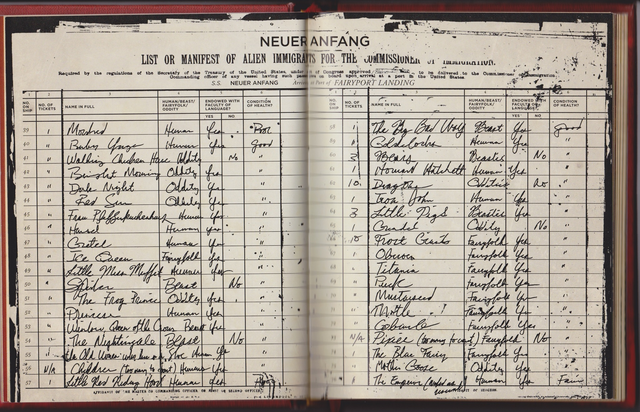 NEUER ANFANG
LIST OR MANIFEST OF ALIEN IMMIGRANTS FOR THE COMMISSIONER OF IMMIGRATION.
Required by the regulations of the Secretary of the Treasury of the United States, under Act of Congress approved to be delivered to the
Commanding officer of any vessel having such passengers on board upon arrival at a port in the United States
S.S. NEUER ANFANG Arriving at Port of FAIRYPORT LANDING
NO. ON LIST NO. OF TICKETS NAME IN FULL HUMAN/BEAST/FAIRYFOLK/ODDITY ENDOWED WITH FACULTY OF LANGUAGE? YES NO CONDITION OF HEALTH?
39 1 Mordred Human Yes Poor
40 1 Baba Yaga Human Yes Good
41 1 Walking Chicken House Oddity No "
42 " Bright Morning Oddity Yes "
43 " Dark Night Oddity Yes "
44 " Red Sun Oddity Yes "
45 " Frau Pfefferkuchenhaus Human Yes "
46 " Hansel Human Yes "
47 " Gretel Human Yes "
48 " Ice Queen Fairyfolk Yes "
49 " Little Miss Muffet Human Yes "
50 " Spider Beast No "
51 " The Frog Prince Oddity Yes "
52 " Princess Human Yes "
53 " Queen of the Crows Beast Yes "
54 " The Nightingale Beast No "
55 " The Old Woman who live in a Shoe Human Yes "
56 N/A Children (too many to count) Human Yes "
57 1 Little Red Riding Hood Human Yes
AFFIDAVIT OF THE MASTER OR COMMANDING OFFICER, OR FIRST OR SECOND OFFICER
NO. ON LIST NO. OF TICKETS NAME IN FULL HUMAN/BEAST/FAIRYFOLK/ODDITY ENDOWED WITH FACULTY OF LANGUAGE? YES NO CONDITION OF HEALTH?
1 The Big Bad Wolf Beast Yes Good
" Goldilocks Human Yes "
3 Bears Beasts No "
1 Howard Hatchett Human Yes "
10 Dragons Oddities No "
1 Iron John Human Yes "
3 Little Pigs Beasts Yes "
1 Oddity No "
10 Frost Giants Fairyfolk Yes "
1 Oberon Fairyfolk Yes "
" Titania Fairyfolk Yes "
" Puck Fairyfolk Yes "
" Mustardseed Fairyfolk Yes "
" Fairyfolk Yes "
" Cobweb Fairyfolk Yes "
N/A Pixies (too many to count) Fairyfolk No "
1 The Blue Fairy Fairyfolk Yes "
" Mother Goose Oddity Yes "
" The Emperor Human Yes Fair